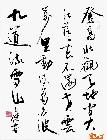 登高壮观天地间大
江茫茫去不还黄云
万里动风色白波
九道流雪山